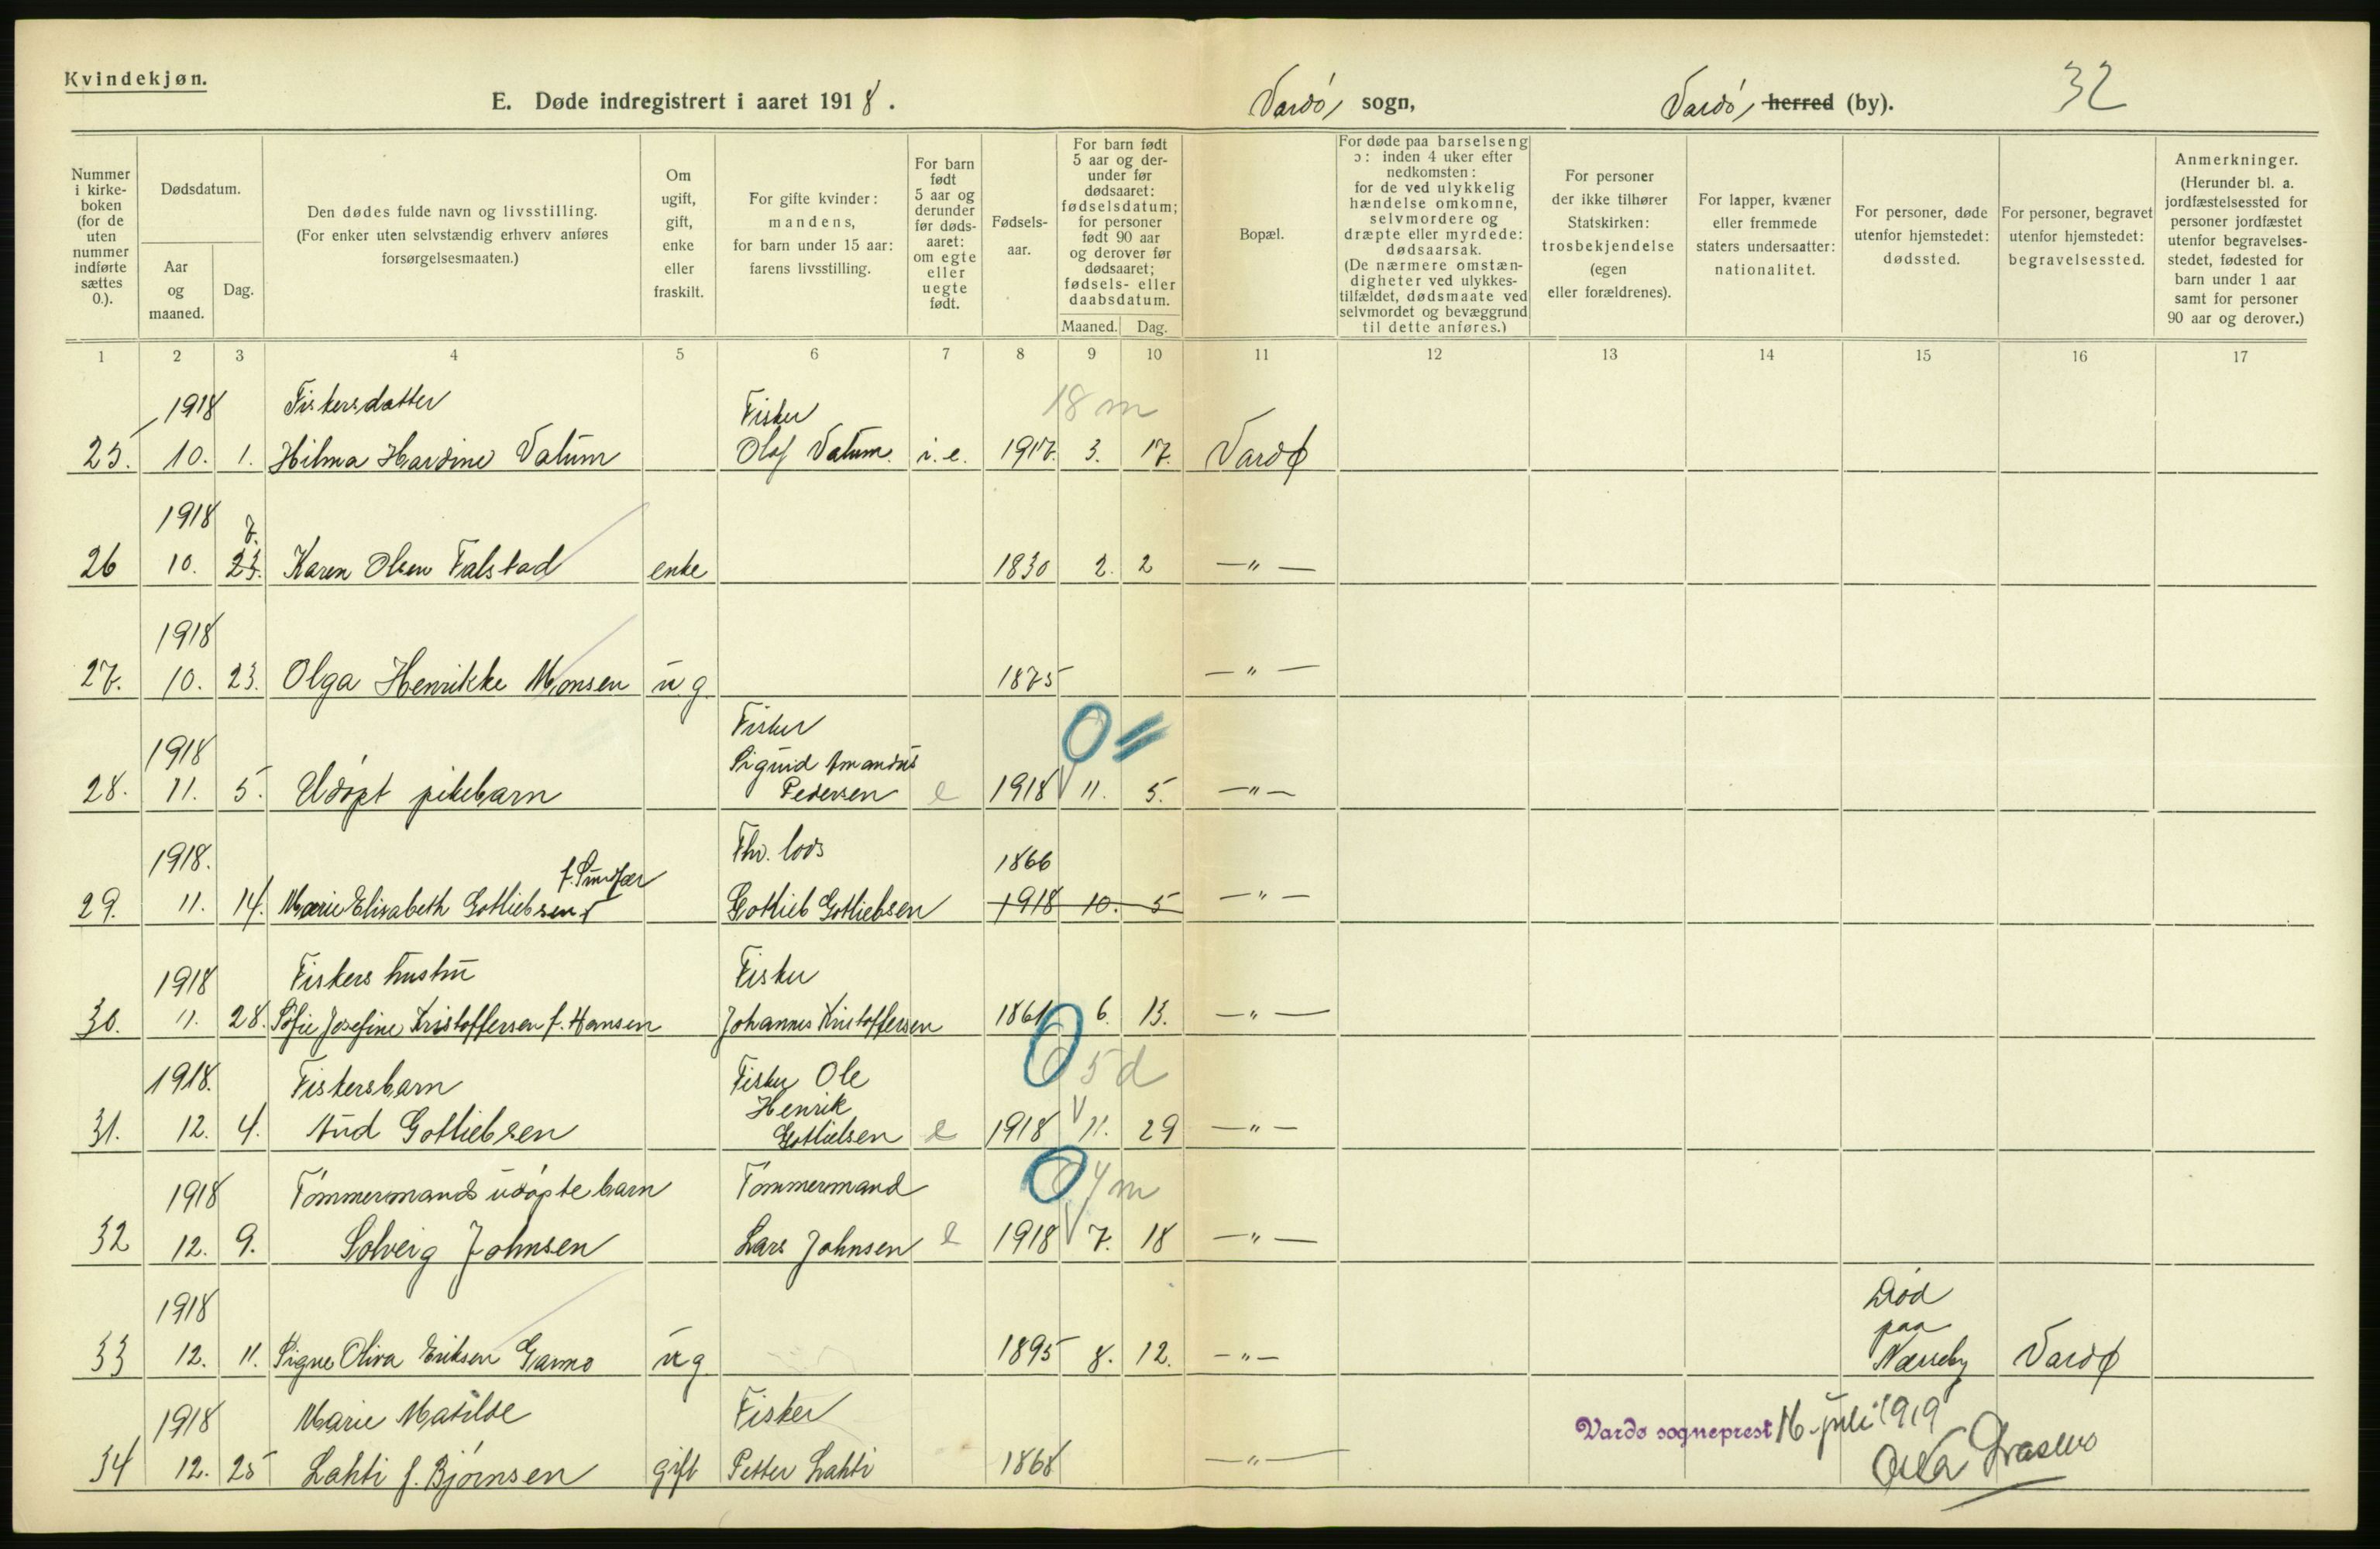 Kvindekjøn.
E. Døde indregistrert i aaret 1918.
Vardø sogn,
Vardø herred (by).
32
Nummer
i kirke-
boken
(for de
uten
nummer
indførte
sættes
0.).
Dødsdatum.
Aar
og
maaned.
Dag.
Den dødes fulde navn og livsstilling.
(For enker uten selvstændig erhverv anføres
forsørgelsesmaaten.)
Om
ugift,
gift,
enke
eller
fraskilt.
For gifte kvinder:
mandens,
for barn under 15 aar:
farens livsstilling.
For barn
født
5 aar og
derunder
før døds-
aaret:
om egte
eller
uegte
født.
Fødsels-
aar.
For barn født
5 aar og der-
under før
dødsaaret:
fødselsdatum;
for personer
født 90 aar
og derover før
dødsaaret;
fødsels- eller
daabsdatum.
Maaned. Dag.
Bopæl.
For døde paa barselseng
ɔ: inden 4 uker efter
nedkomsten:
for de ved ulykkelig
hændelse omkomne,
selvmordere og
dræpte eller myrdede:
dødsaarsak.
(De nærmere omstæn-
digheter ved ulykkes-
tilfældet, dødsmaate ved
selvmordet og bevæggrund
til dette anføres.)
For personer
der ikke tilhører
Statskirken:
trosbekjendelse
(egen
eller forældrenes).
For lapper, kvæner
eller fremmede
staters undersaatter:
nationalitet.
For personer, døde
utenfor hjemstedet:
dødssted.
For personer, begravet
utenfor hjemstedet:
begravelsessted.
Anmerkninger.
(Herunder bl. a.
jordfæstelsessted for
personer jordfæstet
utenfor begravelses-
stedet, fødested for
barn under 1 aar
samt for personer
90 aar og derover.)
1 2 3 4 5 6 7 8 9 10 11 12 13 14 15 16 17
1918 Fiskersdatter Fisker 18 m
25. 10. 1. Hilma Hardine Vatum Olaf Vatum. i. e. 1917. 3. 17. Vardø
1918 7.
26 10. 23. Karen Olsen Falstad enke 1830 2. 2 — " —
1918
27. 10. 23. Olga Henrikke Monsen u. g. 1875 — " —
Fisker 0 =
1918 Sigurd Amandus
28. 11. 5. Udøpt pikebarn Pedersen e 1918 11. 5. — " —
1918. Fhv. lods 1866
29. 11. 14. Marie Elisabeth Gotliebsen Gotlieb Gotliebsen 1918 10. 5 — " —
1918 Fiskers hustru Fisker
30. 11. 28. Sofie Josefine Kristoffersen f. Hansen Johannes Kristoffersen 1861 6. 13. — " —
1918. Fiskersbarn Fisker Ole 0 5 d
Henrik
31. 12. 4. Aud Gotliebsen Gotliebsen e 1918 11. 29 — " —
1918 Tømmermands udøpte barn Tømmermand 0 4 m
32 12. 9. Solveig Johnsen Lars Johnsen e 1918 7. 18 — " —
1918 Død
paa
33 12. 11. Signe Oliva Eriksen Garmo u. g. 1895 8. 12. — " — Næsseby Vardø
1918 Marie Matilde Fisker
34 12. 25 Lahti f. Bjørnsen gift Petter Lahti 1868 — " —
Vardø sogneprest 16. juli 1919